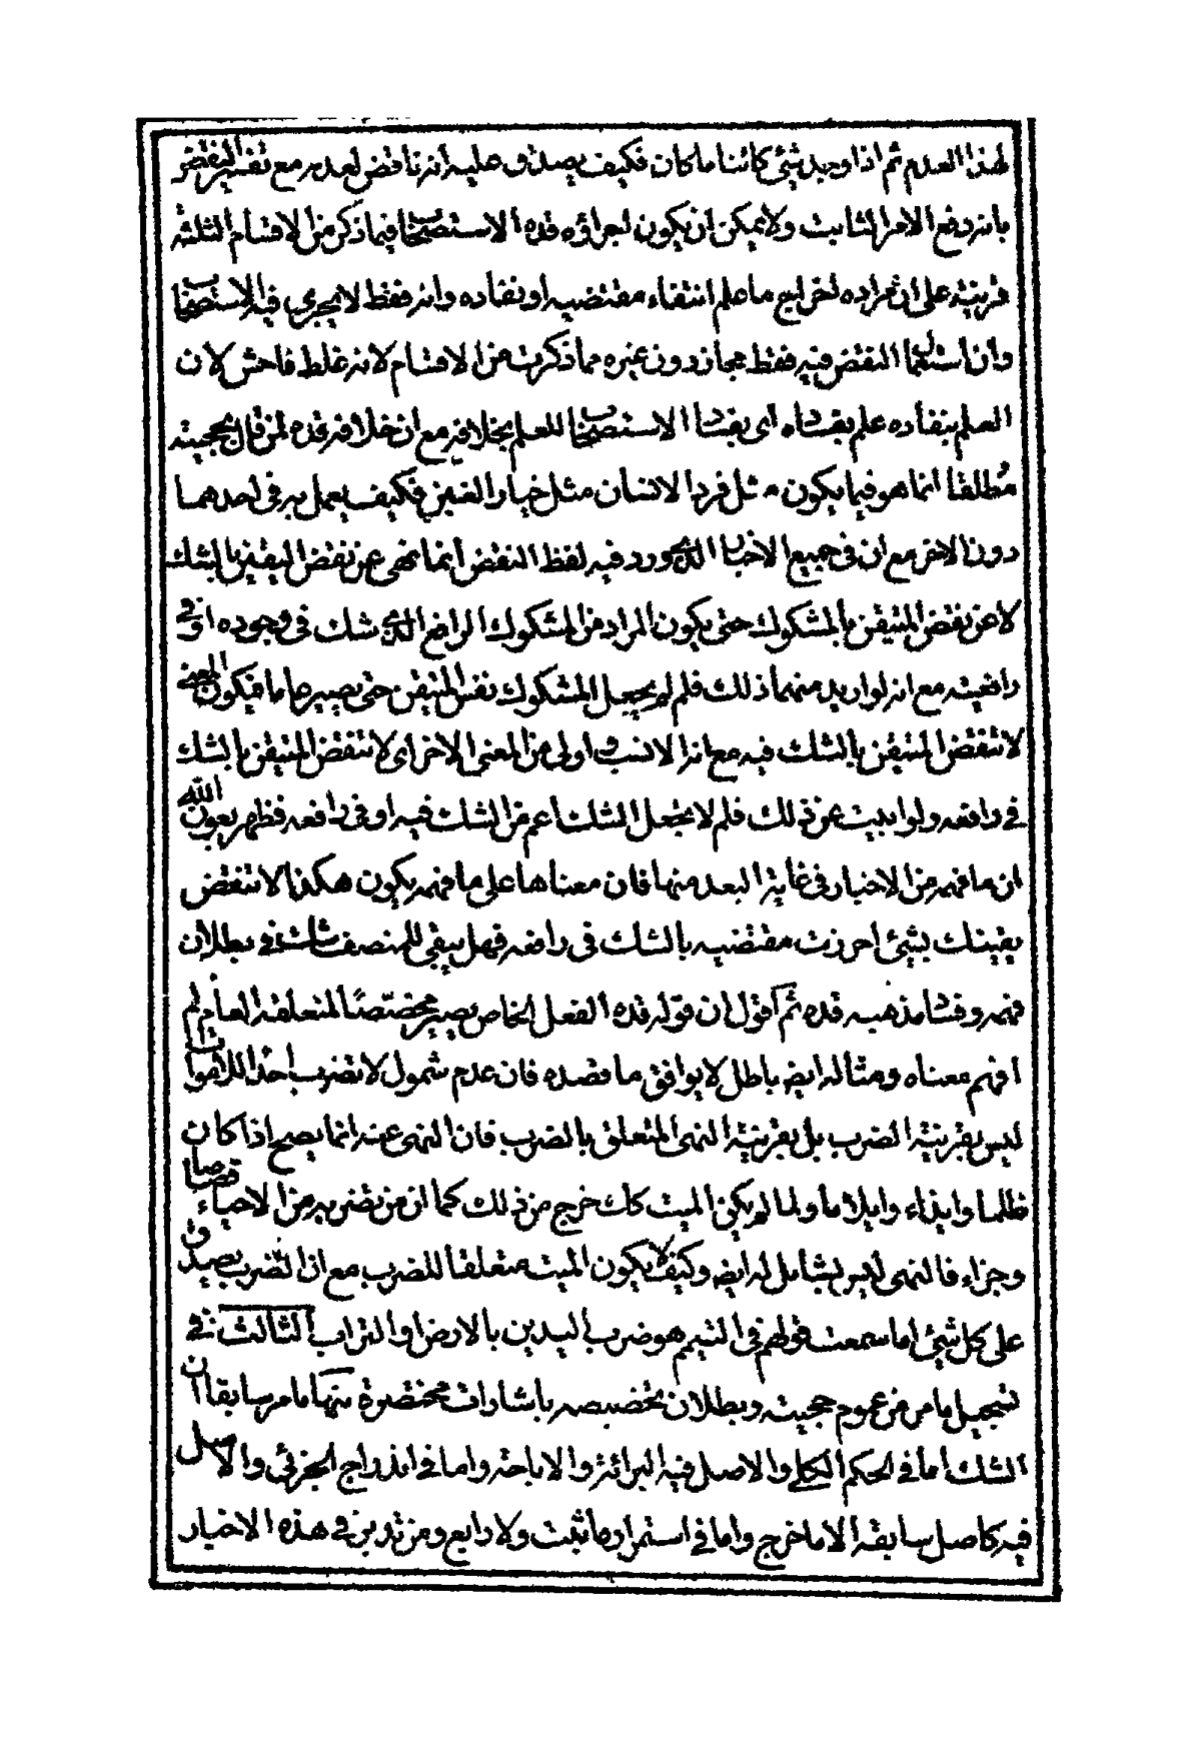 لهذا العدم ثم اذا وجد شئ كائنا ما كان فكيف يصدق عليه انه ناقض لعدمه مع تفسير النقض
بانه رفع الامر الثابت ولا يمكن ان يكون اجراؤه قده الاستصحاب فيما ذكر من الاقسام الثلثة
قرينة على ان مراده اخراج ما علم انتفاء مقتضيه او نفاده وانه فقط لا يجرى فيه الاستصحاب
وان استعمال النقض فيه فقط مجاز دون غيره مما ذكرت من الاقسام لانه غلط فاحش لان
العلم بنفاده علم بفساده اى بفساد الاستصحاب للعلم بخلافه مع ان خلافه قده لمن قال بحجيته
مطلقا انما هو فيما يكون مثل فرد الانسان مثل خيار الغبن فكيف يعمل به فى احدهما
دون الاخر مع ان فى جميع الاخبار الذى ورد فيه لفظ النقض انما نهى عن نقض اليقين بالشك
لا عن نقض المتيقن بالمشكوك حتى يكون المراد من المشكوك الرافع الذى شك فى وجوده او فى
رافعيته مع انه لو اريد منهما ذلك فلم لم يجعل المشكوك نفس المتيقن حتى يصير عاما فيكون المعنى
لا تنقض المتيقن بالشك فيه مع انه الانسب و اولى من المعنى الاخر اى لا تنقض المتيقن بالشك
فى رافعه ولو ابيت عن ذلك فلم لا تجعل الشك اعم من الشك فيه او فى رافعه فظهر بعون الله
ان ما فهمه من الاخبار فى غاية البعد منها فان معناها على ما فهمه يكون هكذا لا تنقض
يقينك بشئ احرزت مقتضيه بالشك فى رافعه فهل يبقى للمنصف شك فى بطلان
فهمه وفساد مذهبه قده ثم اقول ان قوله قده الفعل الخاص يصير مخصصا لمتعلقه العام لم
افهم معناه ومثاله ايضا باطل لا يوافق ما قصده فان عدم شمول لا تضرب احدا للاموات
ليس بقرينة الضرب بل بقرينة النهى المتعلق بالضرب فان النهى عنه انما يصح اذا كان
ظلما وايذاء وايلاما ولما لم يكن الميت كك خرج من ذلك كما ان من تضربه من الاحياء قصاصا
وجزاء فالنهى ليس بشامل له ايضا وكيف لا يكون الميت متعلقا للضرب مع ان الضرب يصدق
على كل شئ اما سمعت قولهم فى التيمم هو ضرب اليدين بالارض او التراب الثالث فى
تسجيل ما مر من عموم حجيته وبطلان تخصيصه باشارات مختصرة منها ما مر سابقا ان
الشك اما فى الحكم الكلى والاصل فيه البرائة والاباحة واما فى اندراج الجزئى والاصل
فيه كاصل سابقه الا ما خرج واما فى استمرار ما ثبت ولا رابع ومن تدبر فى هذه الاخبار